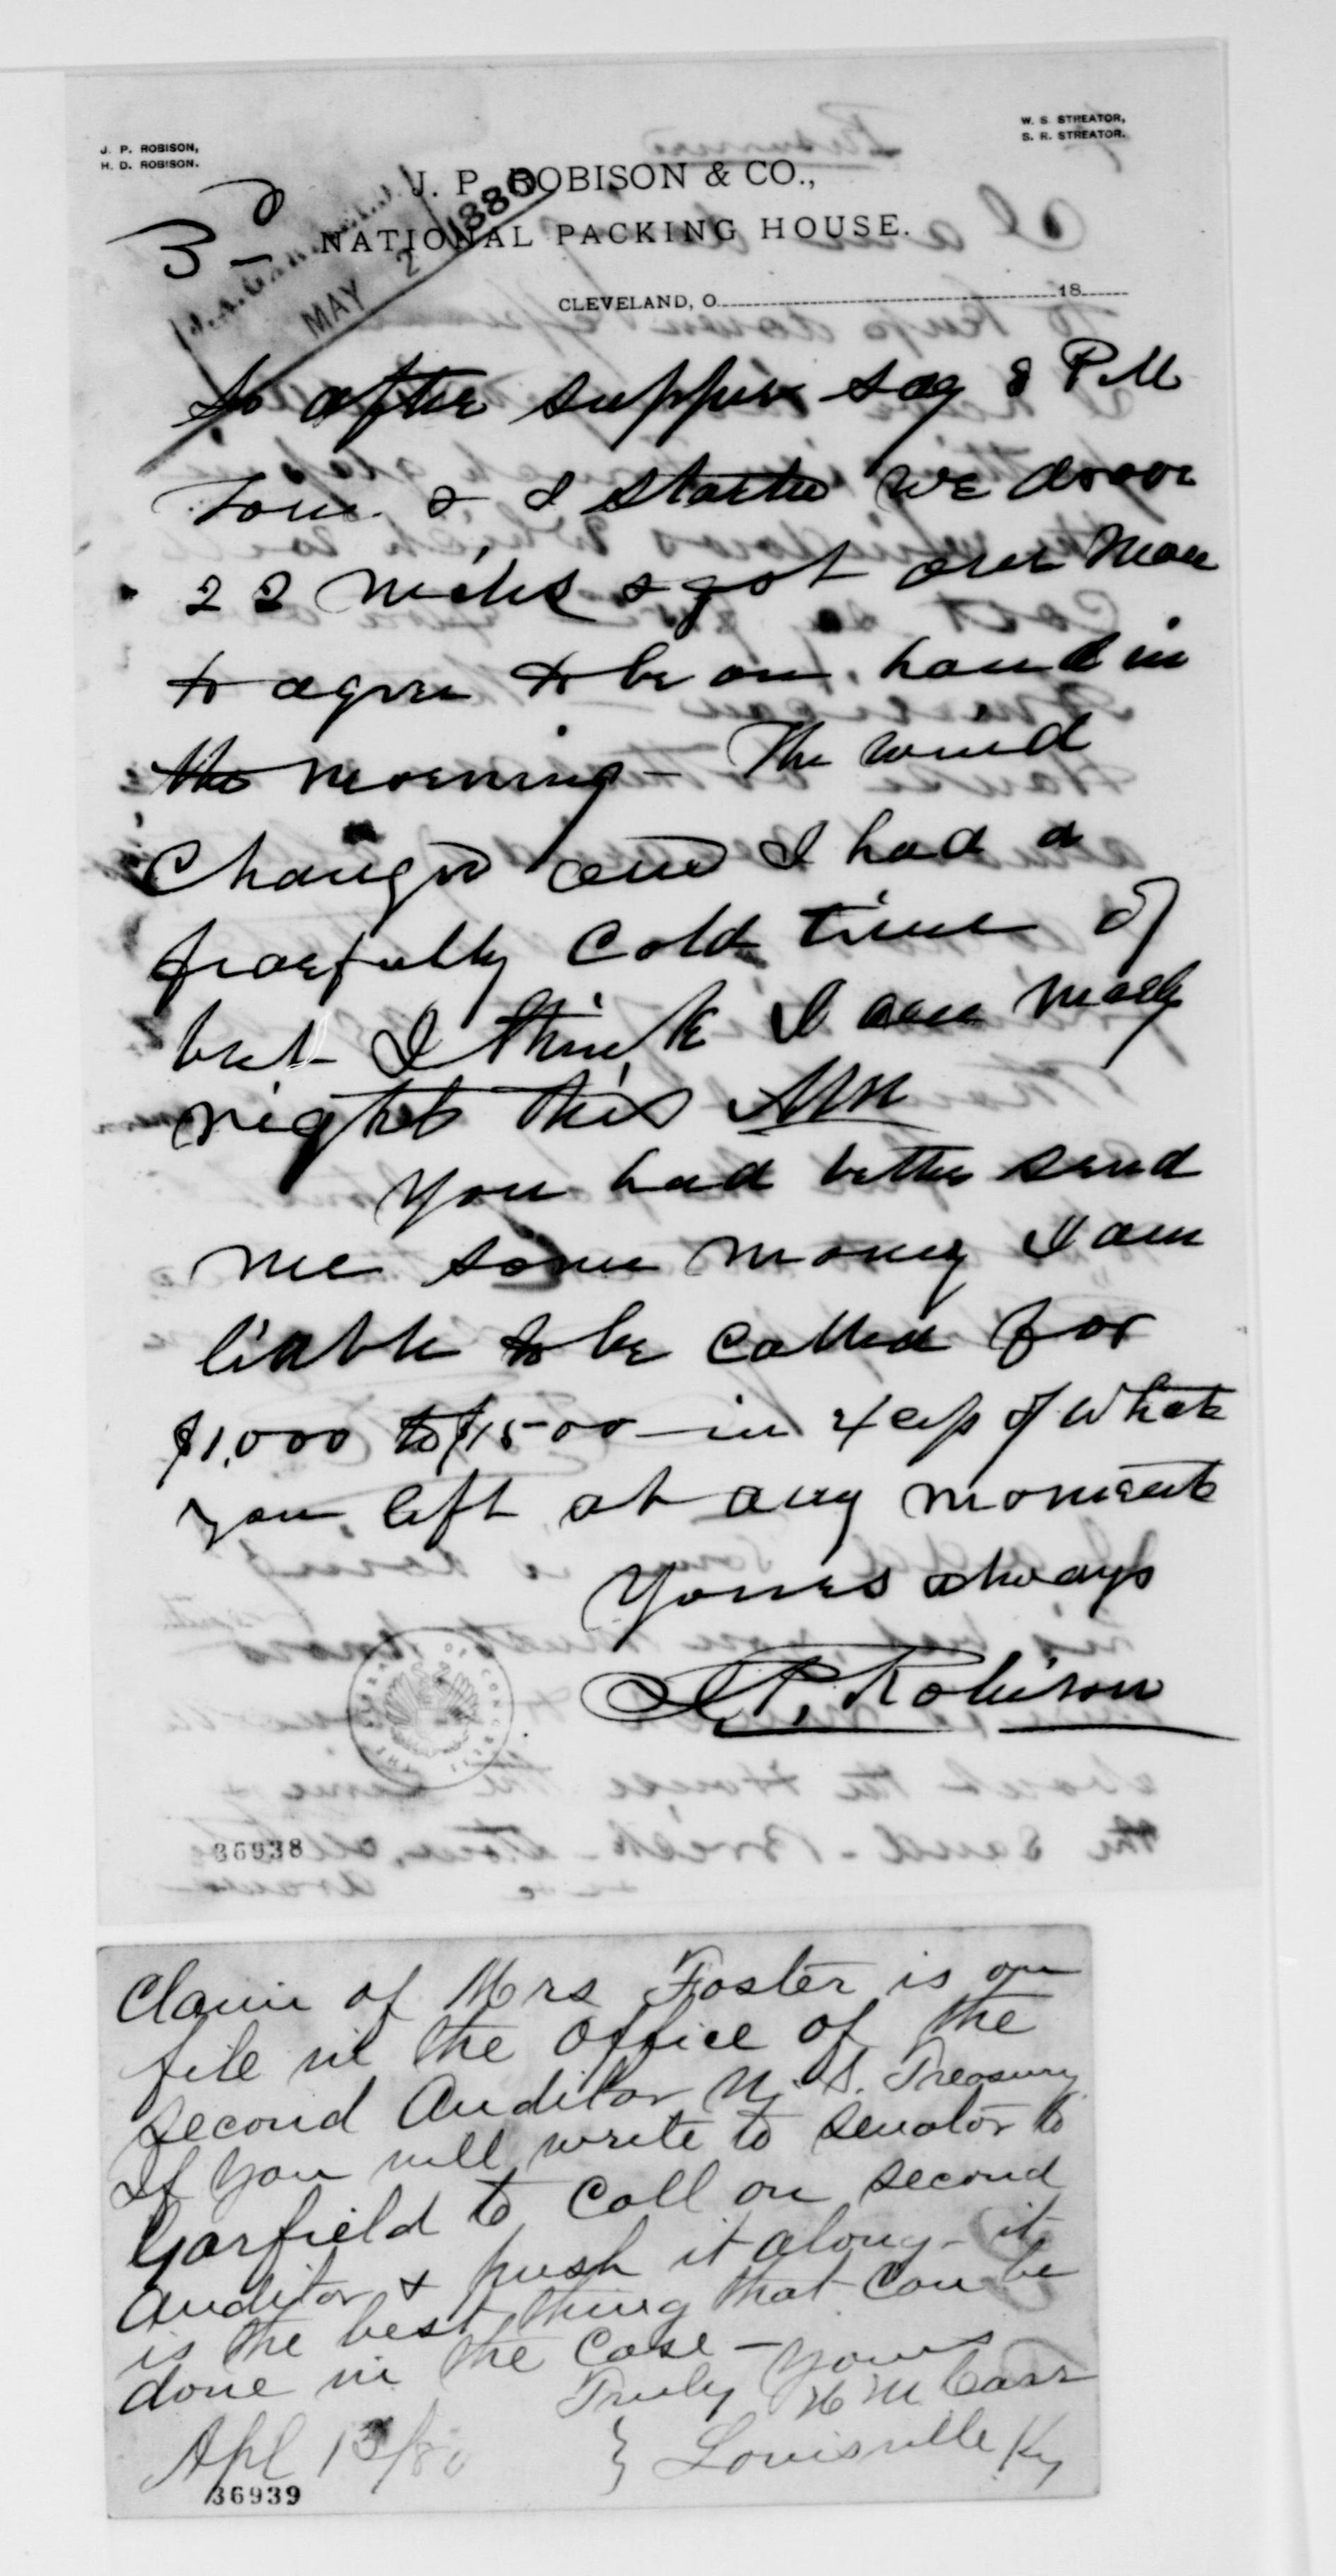 J. P. ROBISON,
H. D. ROBISON.
W. S. STREATOR,
S. R. STREATOR.
J. P. ROBISON & CO.,
NATIONAL PACKING HOUSE.
3d
MAY 2 1880
CLEVELAND, O. 18
So after supper say 8 P.M
Tom & I started we drove
22 miles & got our man
to agree to be on hand in
the morning – The wind
Changed and I had a
fearfully cold time of
but I think I am
right this
You had better send
me some money I am
liable to be called for
$1,000 to $1500 – in of what
you left at any moment
Yours always
J.P. Robison
THE LIBRARY OF CONGRESS
36938
Claim of Mrs Foster is on
file in the Office of the
Second Auditor U.S. Treasury
If you will write to Senator to
Garfield to Call on second
Auditor & push it along – it
is the best thing that can be
done in the Case – Yours
Truly H M Carr
Apl 13/80 } Louisville Ky
36939